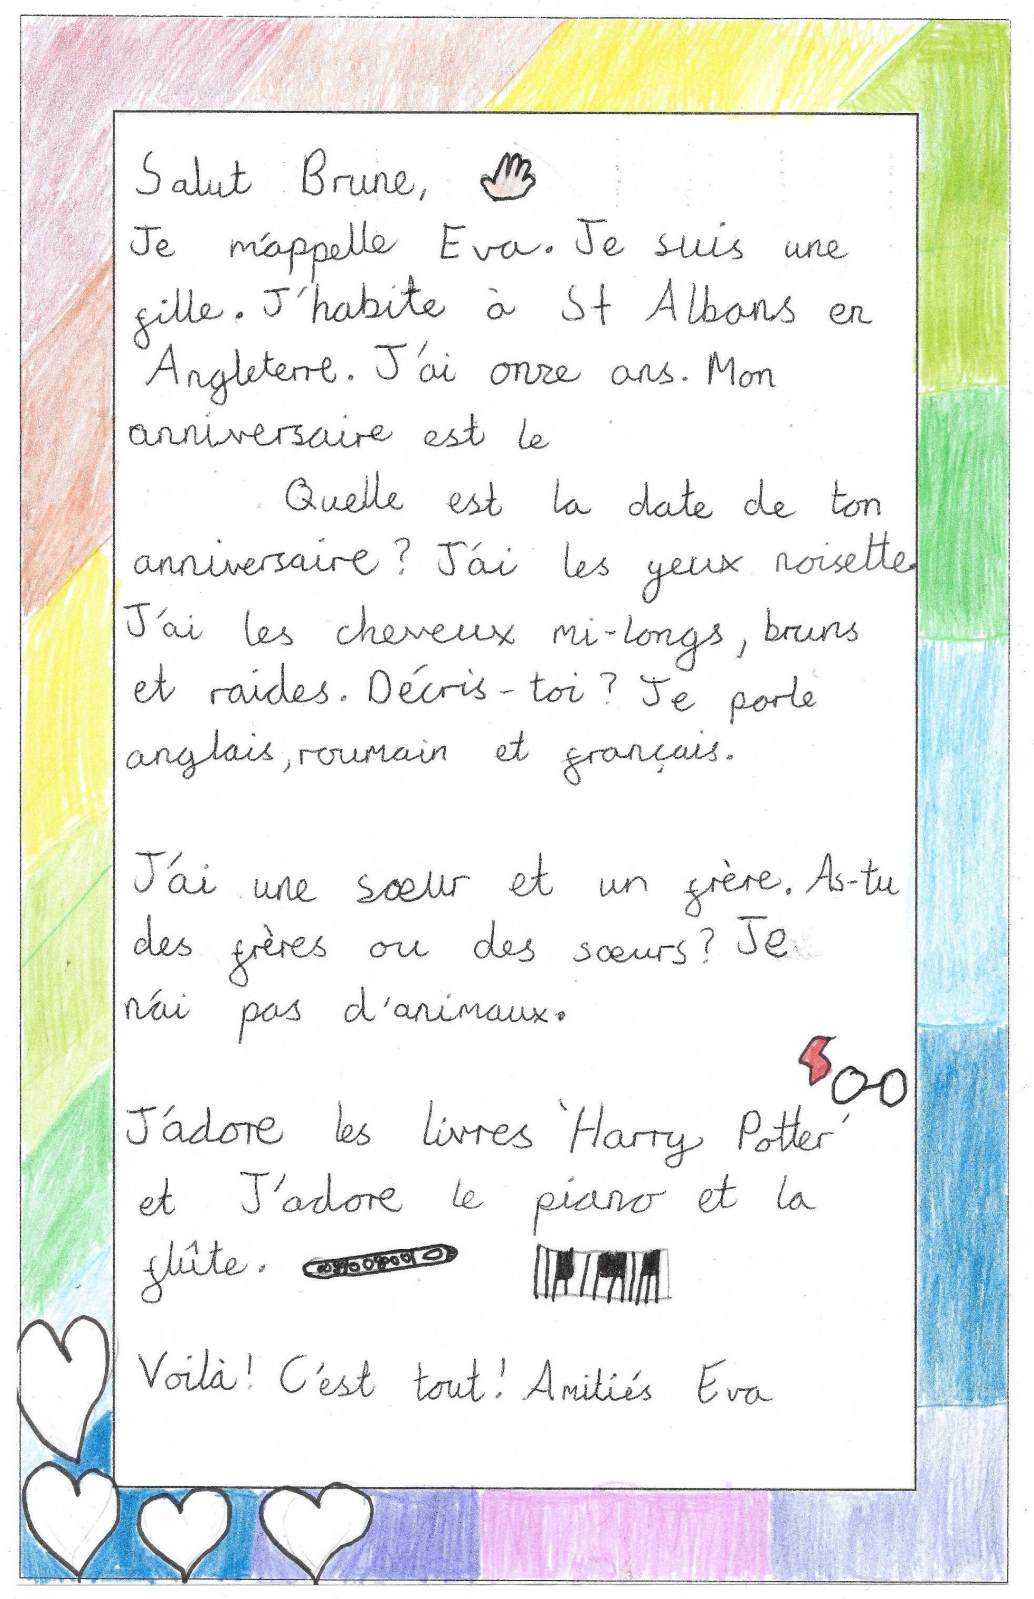 Salut Brune,
Je m'appelle Eva. Je suis une
fille. J'habite à St Albans en
Angleterre. J'ai onze ans. Mon
anniversaire est le
Quelle est la date de ton
anniversaire? J'ai les yeux noisette.
J'ai les cheveux mi-longs, bruns
et raides. Décris-toi? Je parle
anglais, roumain et français.
J'ai une sœur et un frère. As-tu
des frères ou des sœurs? Je
n'ai pas d'animaux.
J'adore les livres 'Harry Potter'
et J'adore le piano et la
flûte.
Voilà! C'est tout! Amitiés Eva